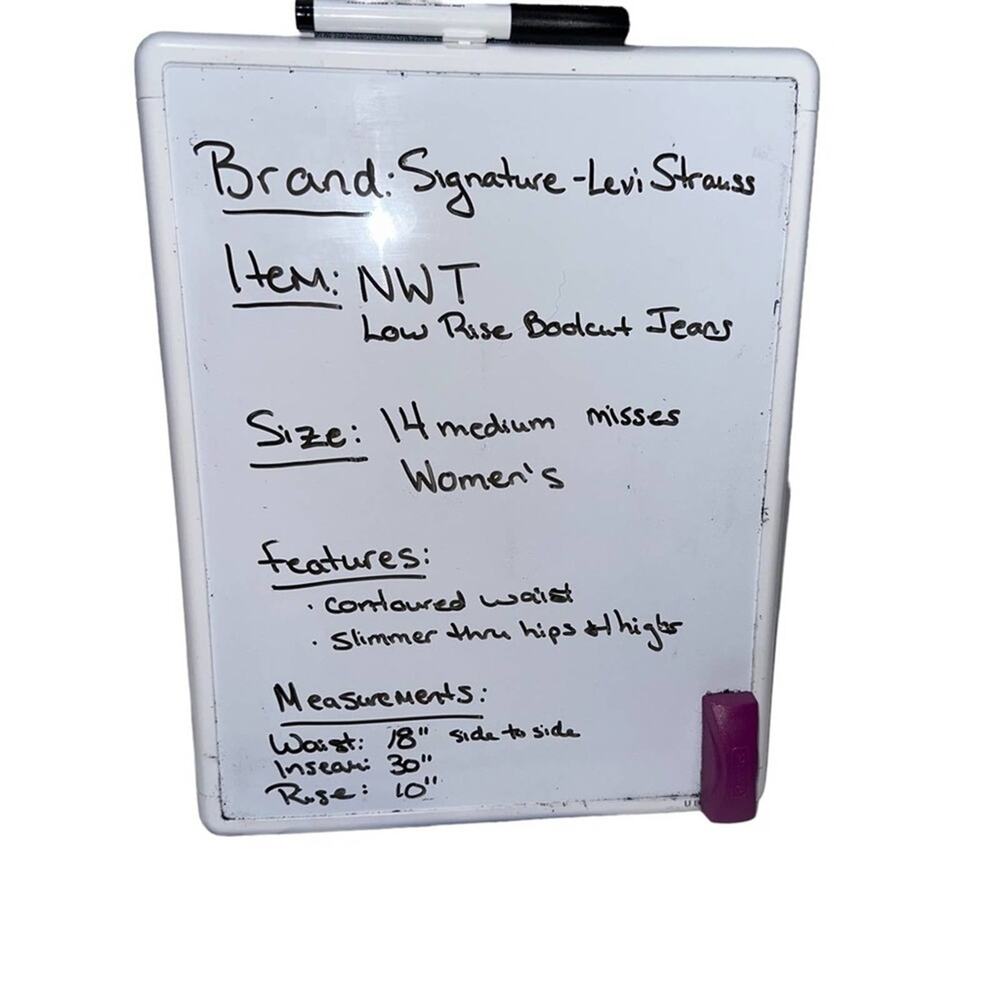 Brand: Signature - Levi Strauss
Item: NWT
Low Rise Bootcut Jeans
Size: 14 medium misses
Women's
features:
· contoured waist
· slimmer thru hips & thighs
Measurements:
Waist: 18" side to side
Inseam: 30"
Rise: 10"